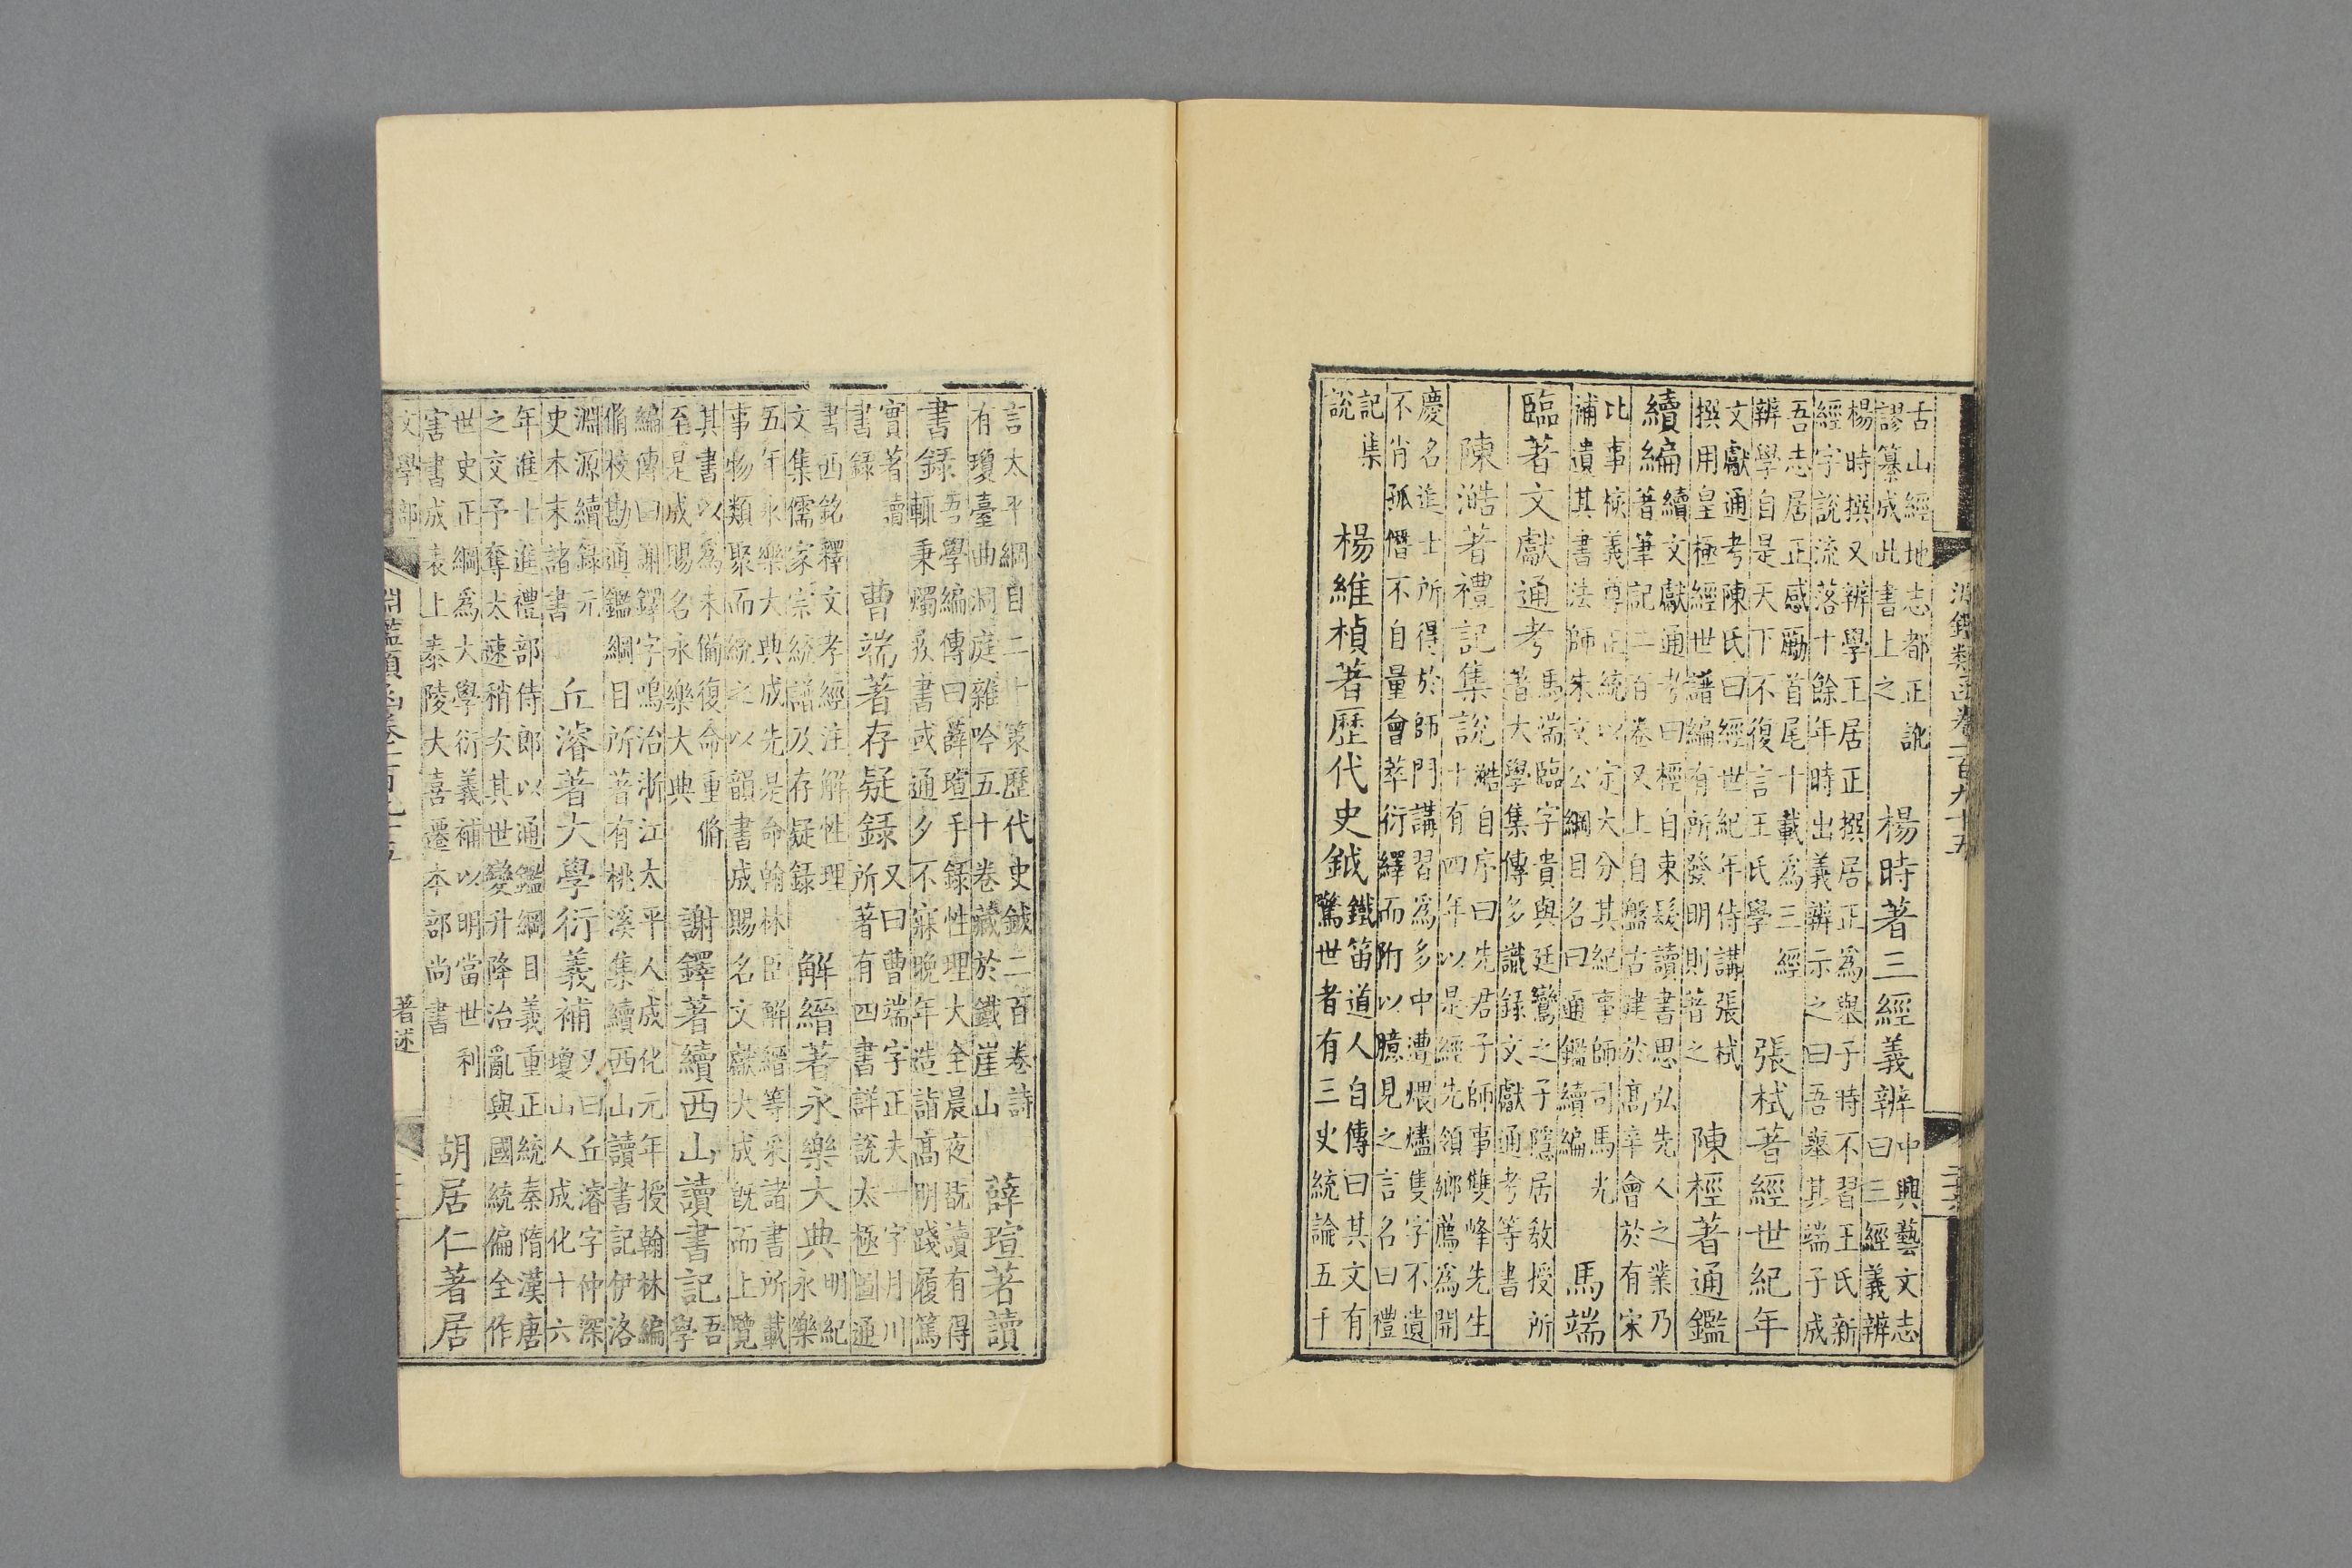 淵鑑類函卷一百九十五
古山經地志都正訛
謬纂成此書上之
楊時著三經義辨
中興藝文志
曰三經義辨
楊時撰又辨學正居正撰居正為舉子時不習王氏新
經字說流落十餘年時出義辨示之曰吾舉其端子成
吾志居正感勵首尾十載為三經
辨學自是天下不復言王氏學
張栻著經世紀年
文獻通考陳氏曰經世紀年侍講張栻
撰用皇極經世譜編有所發明則著之
陳樫著通鑑
續編
續文獻通考曰樫自束髮讀書思弘先人之業乃
著筆記二百卷又上自盤古建於高辛會於有宋
比事核義尊正統以定大分其紀事師司馬光
補遺其書法師朱文公綱目名曰通鑑續編
馬端
臨著文獻通考
馬端臨字貴與廷鸞之子隱居教授所
著大學集傳多識録文獻通考等書
陳澔著禮記集說
澔自序曰先君子師事雙峰先生
十有四年以是經先領鄉薦為開
慶名進士所得於師門講習為多中遭煨燼隻字不遺
不肖孤僭不自量會萃衍繹而附以臆見之言名曰禮
記集
說
楊維楨著歷代史鉞
鐵笛道人自傳曰其文有
驚世者有三史統論五千
言太平綱目二十策歷代史鉞二百卷詩
有瓊臺曲洞庭雜吟五十卷藏於鐵崖山
薛瑄著讀
書録
吾學編傳曰薛瑄手錄性理大全晨夜既讀有得
輒秉燭疾書或通夕不寐晚年造詣高明踐履篤
實著讀
書録
曹端著存疑録
又曰曹端字正夫一字月川
所著有四書詳說太極圖通
書西銘釋文孝經注解性理
文集儒家宗統譜及存疑錄
解縉著永樂大典
明紀
永樂
五年永樂大典成先是命翰林臣解縉等采諸書所載
事物類聚而統之以韻書成賜名文獻大成既而上覽
其書以為未備復命重脩
至是成賜名永樂大典
謝鐸著續西山讀書記
吾
學
編傳曰謝鐸字鳴治浙江太平人成化元年授翰林編
脩校勘通鑑綱目所著有桃溪集續西山讀書記伊洛
淵源續錄元
史本末諸書
丘濬著大學衍義補
又曰丘濬字仲深
瓊山人成化十六
年進士進禮部侍郎以通鑑綱目義重正統秦隋漢唐
之交予奪太速稍次其世變升降治亂與國統偏全作
世史正綱為大學衍義補以明當世利
害書成表上泰陵大喜遷本部尚書
胡居仁著居
文學部
淵鑑類函卷一百九十五
著述